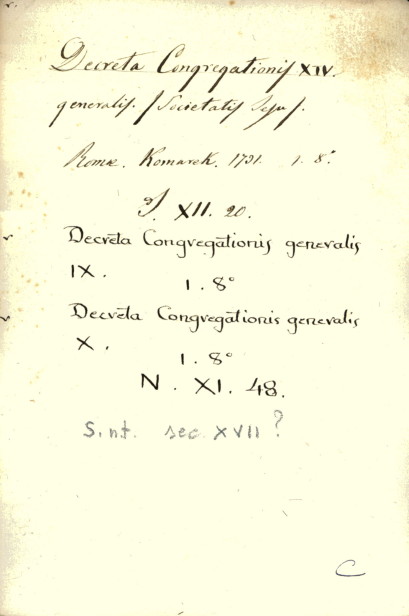 Decreta Congregationis XIV.
generalis. /Societatis Jesu/.
Romæ. Komarek. 1731. 1. 8°.
J. XII. 20.
Decrēta Congregātionis generalis
IX.
1. 8°
Decrēta Congregātionis generalis
X.
1. 8°
N. XI. 48.
S.nt. sec XVII?
C